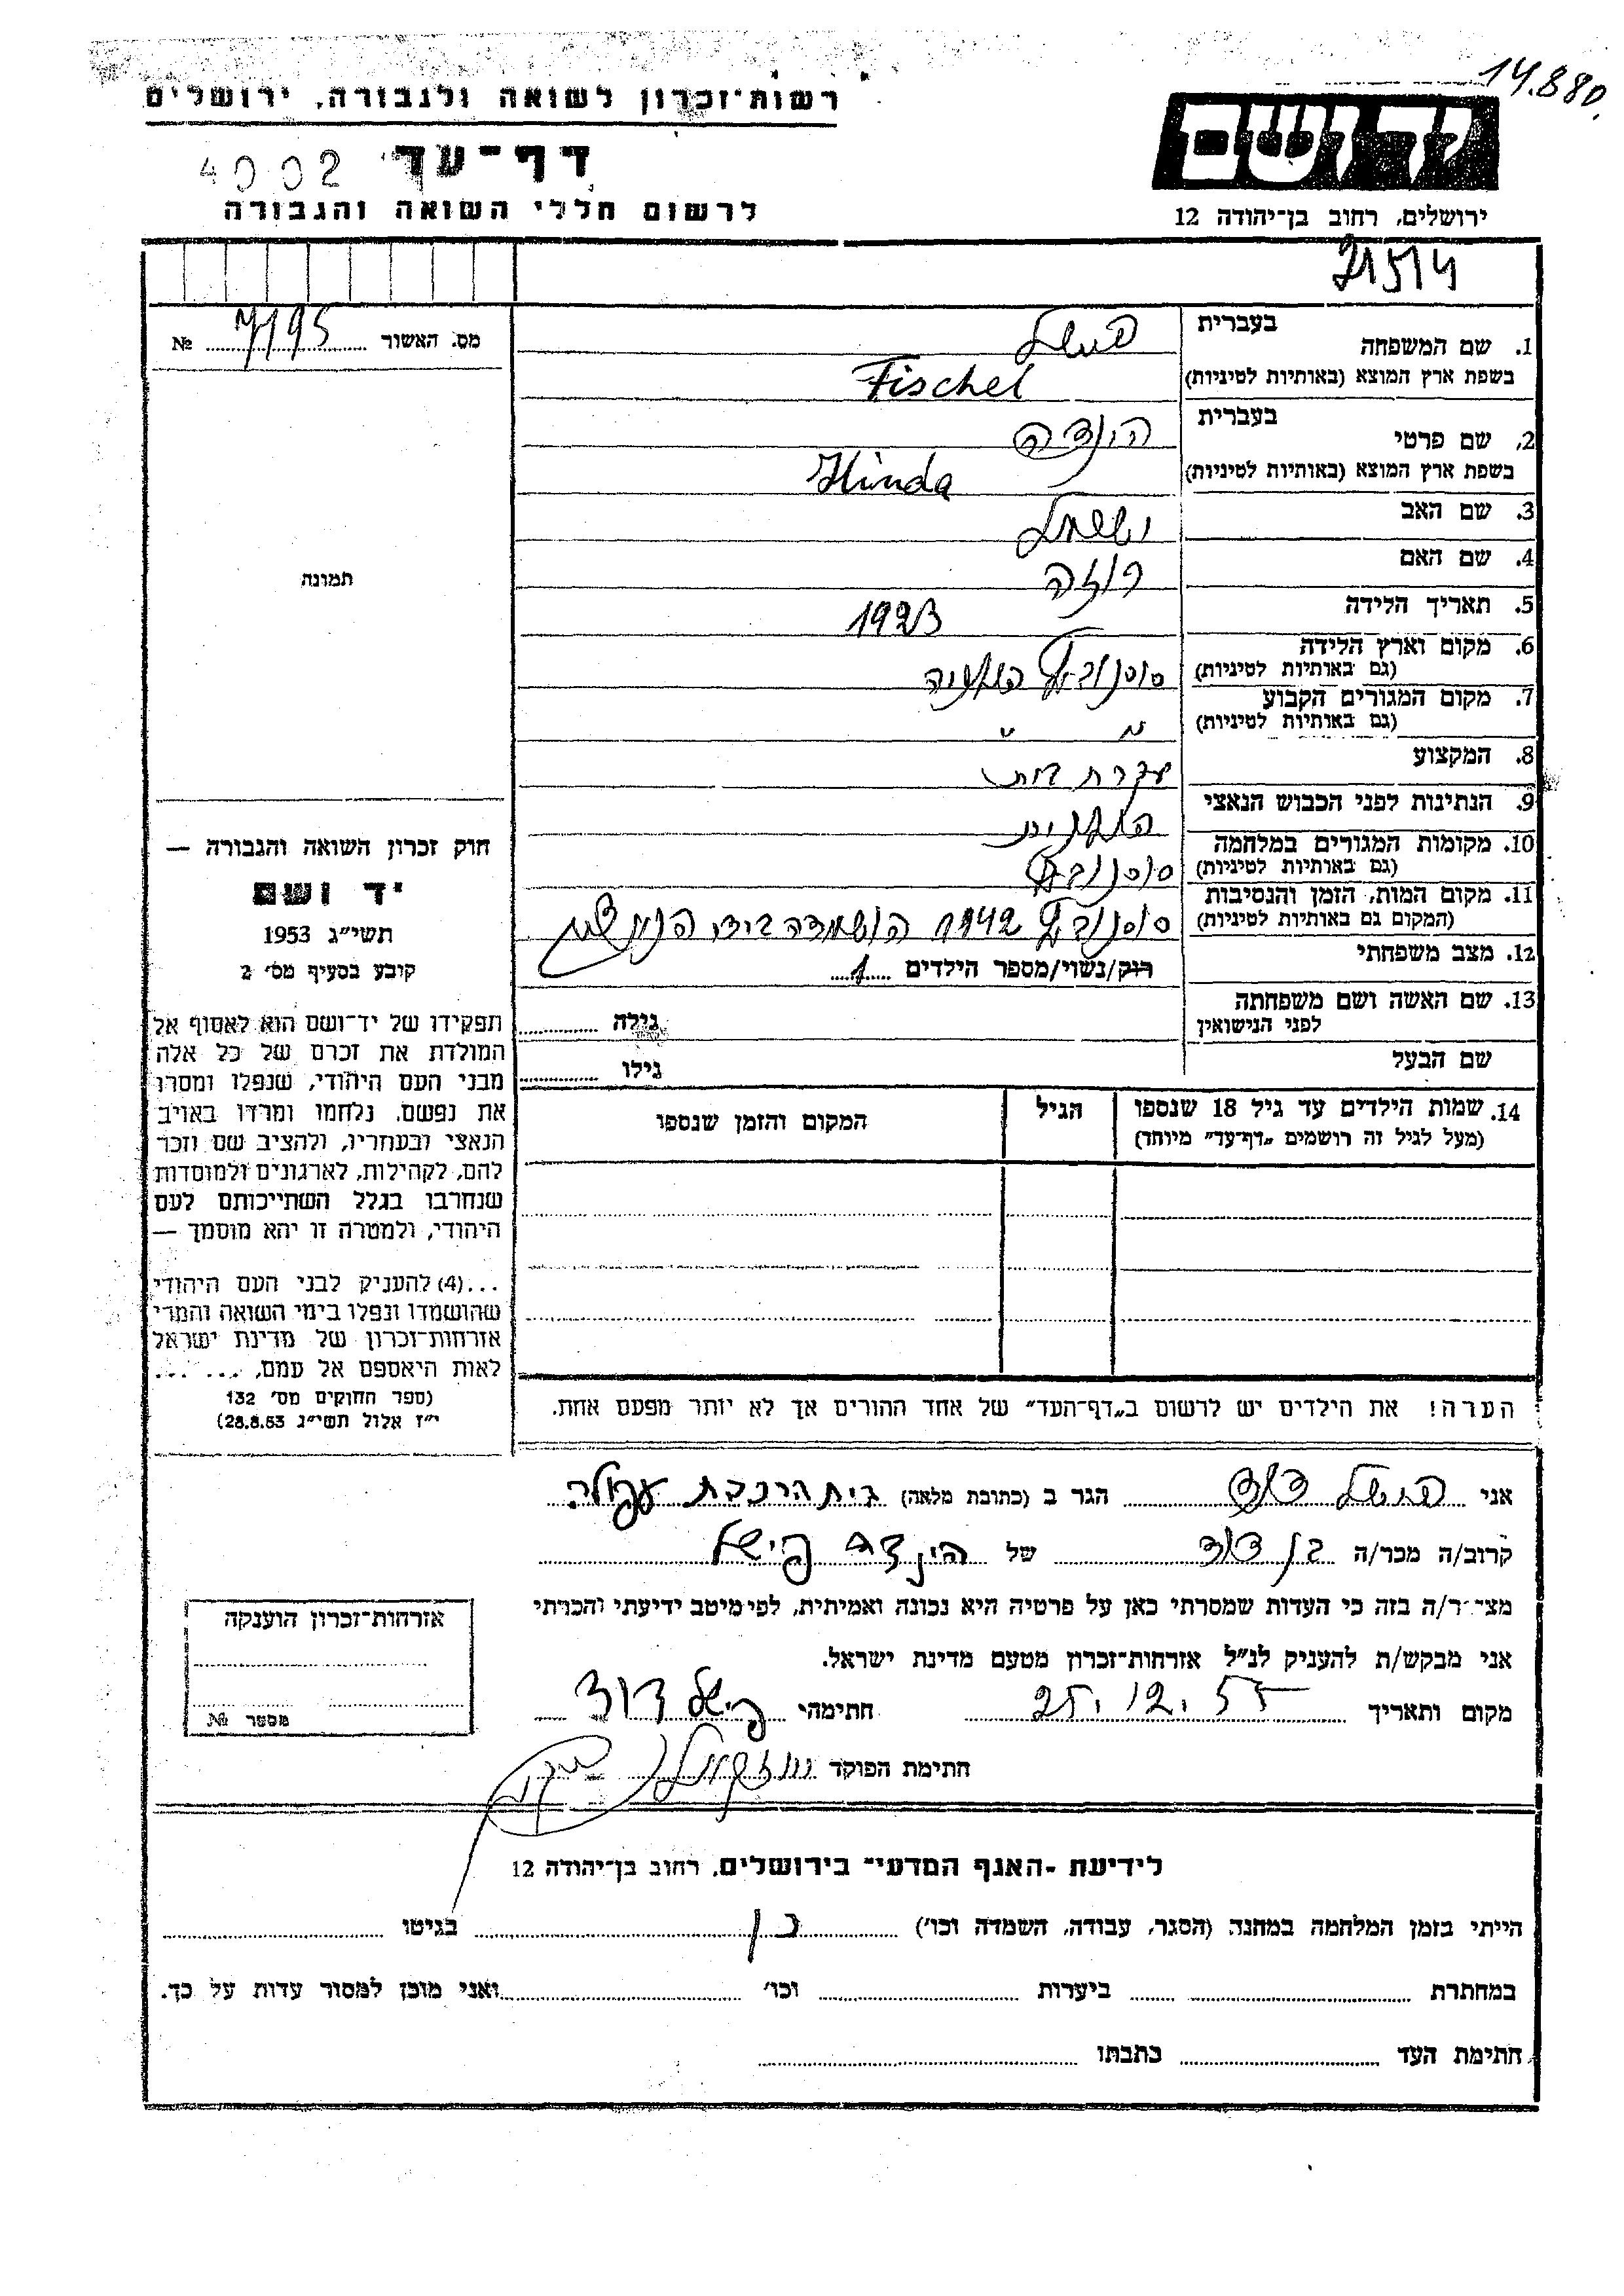 14.880.
רשות־זכרון לשואה ולגבורה, ירושלים
יד ושם
דף־עד
4002
לרשום חללי השואה והגבורה
ירושלים, רחוב בן־יהודה 12
21514
מס. האשור 7195 №
תמונה
1. שם המשפחה
בעברית פישל
בשפת ארץ המוצא (באותיות לטיניות) Fischel
2. שם פרטי
בעברית הינדה
בשפת ארץ המוצא (באותיות לטיניות) Hinda
3. שם האב
4. שם האם רוזה
5. תאריך הלידה 1923
6. מקום וארץ הלידה
(גם באותיות לטיניות) סוסנוביץ פולניה
7. מקום המגורים הקבוע
(גם באותיות לטיניות) " "
8. המקצוע עקרת בית
9. הנתינות לפני הכבוש הנאצי פולנית
10. מקומות המגורים במלחמה
(גם באותיות לטיניות) סוסנוביץ
11. מקום המות, הזמן והנסיבות
(המקום גם באותיות לטיניות) סוסנוביץ 1942 הושמדה בידי הנאצים
12. מצב משפחתי רוק/נשוי/מספר הילדים 1
13. שם האשה ושם משפחתה
לפני הנישואין גילה
שם הבעל גילו
14. שמות הילדים עד גיל 18 שנספו
(מעל לגיל זה רושמים „דף־עד" מיוחד)
הגיל
המקום והזמן שנספו
חוק זכרון השואה והגבורה —
יד ושם
תשי"ג 1953
קובע בסעיף מס' 2
תפקידו של יד־ושם הוא לאסוף אל
המולדת את זכרם של כל אלה
מבני העם היהודי, שנפלו ומסרו
את נפשם, נלחמו ומרדו באויב
הנאצי ובעוזריו, ולהציב שם וזכר
להם, לקהילות, לארגונים ולמוסדות
שנחרבו בגלל השתייכותם לעם
היהודי, ולמטרה זו יהא מוסמך —
...(4) להעניק לבני העם היהודי
שהושמדו ונפלו בימי השואה והמרי
אזרחות־זכרון של מדינת ישראל
לאות היאספם אל עמם, ... ...
(ספר החוקים מס' 132
י"ז אלול תשי"ג 28.8.53)
הערה! את הילדים יש לרשום ב„דף־העד" של אחד ההורים אך לא יותר מפעם אחת.
אני פישל דוד הגר ב (כתובת מלאה) בית הרכבת עפולה
קרוב/ה מכר/ה בן דוד של הינדה פישל
מצהר/ה בזה כי העדות שמסרתי כאן על פרטיה היא נכונה ואמיתית, לפי מיטב ידיעתי והכרתי
אני מבקש/ת להעניק לנ"ל אזרחות־זכרון מטעם מדינת ישראל.
מקום ותאריך 25.12.55 חתימה פישל דוד
חתימת הפוקד
אזרחות־זכרון הוענקה
מספר №
לידיעת -האגף המדעי" בירושלים, רחוב בן־יהודה 12
הייתי בזמן המלחמה במחנה (הסגר, עבודה, השמדה וכו') כן בגיטו
במחתרת ביערות וכו' ואני מוכן למסור עדות על כך.
חתימת העד כתבתו